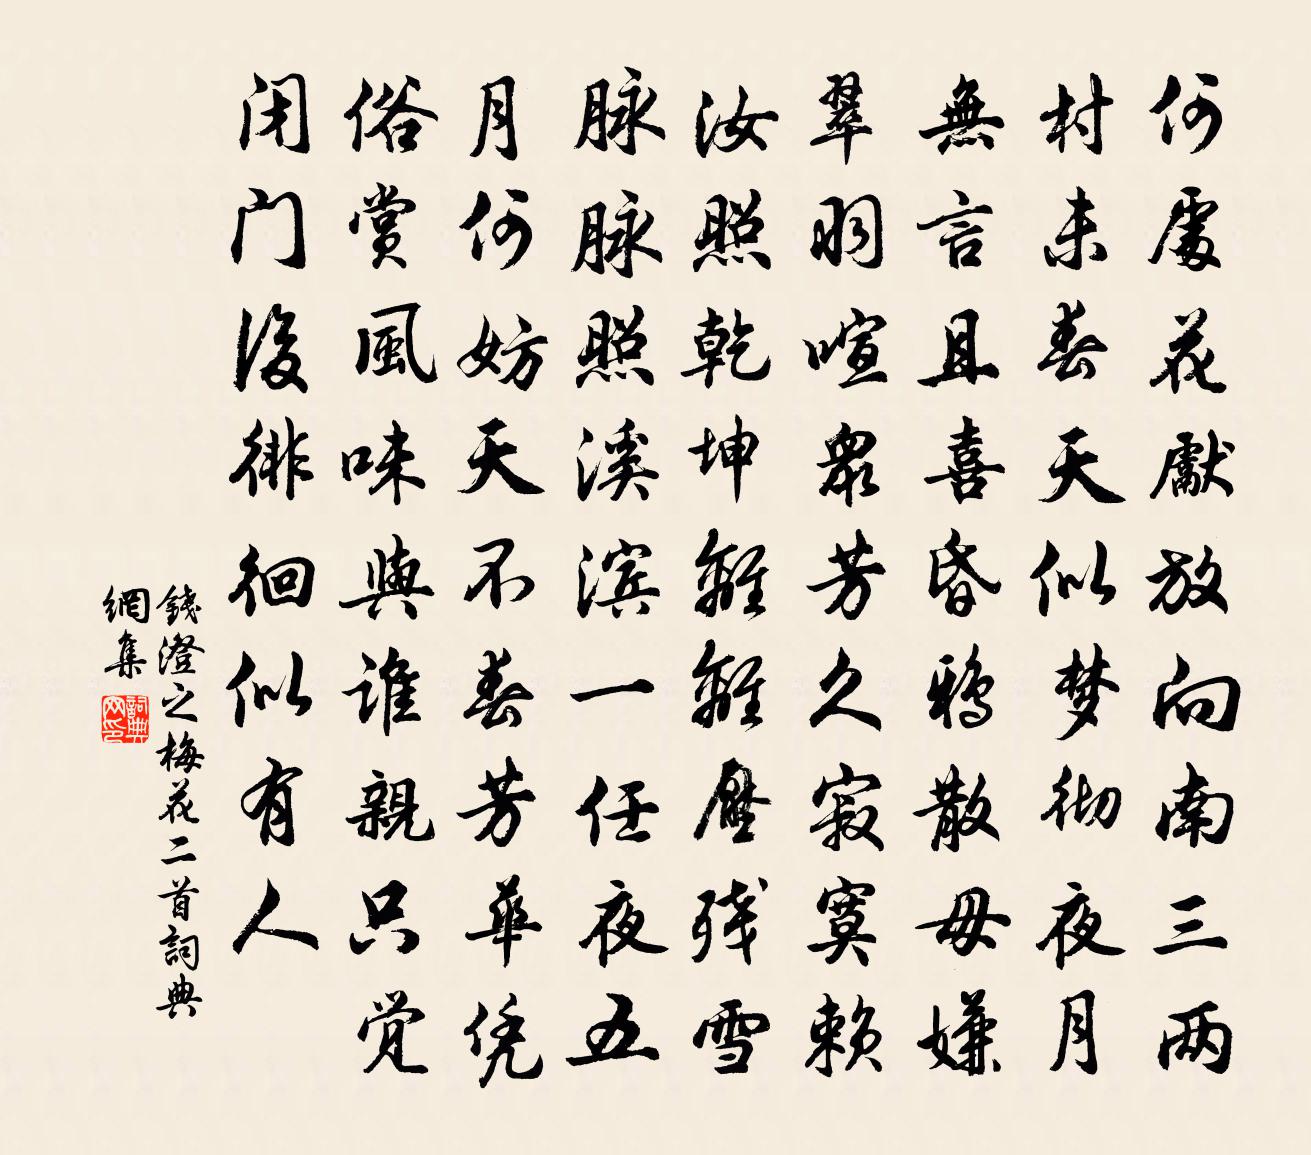 何處花獻放向南三两
村未春天似梦彻夜月
無言且喜昏鸦散毋嫌
翠羽喧眾芳久寂寞赖
汝照乾坤離離壓残雪
脉脉照溪滨一任夜五
月何妨天不春芳華凭
俗赏風味與谁親只觉
闭门後徘徊似有人
錢澄之梅花二首詞典
網集
詞典网印